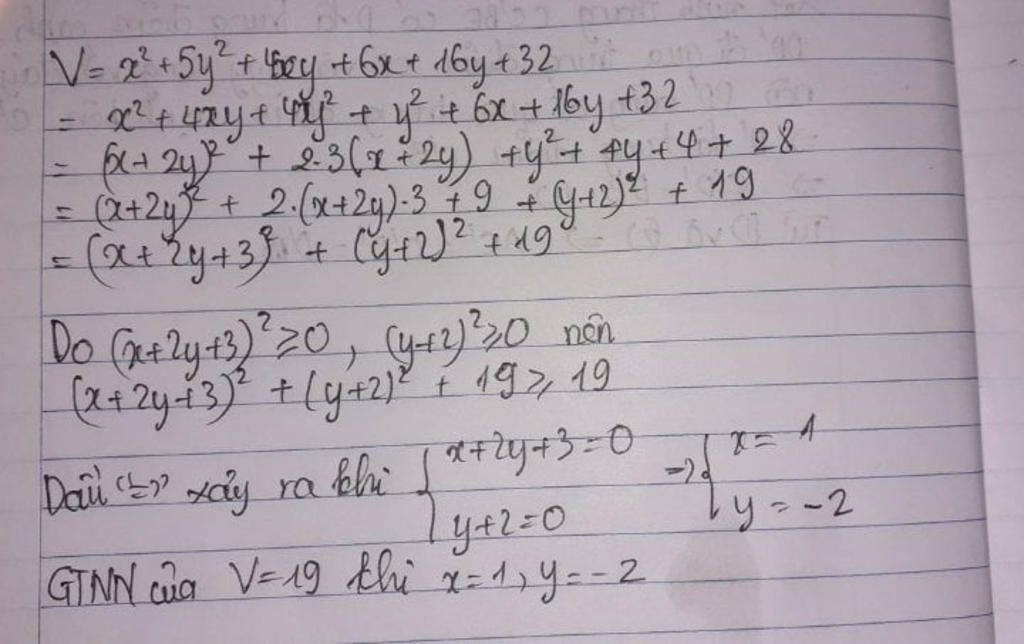 V = x² + 5y² + 4xy + 6x + 16y + 32
= x² + 4xy + 4y² + y² + 6x + 16y + 32
= (x + 2y)² + 2.3(x + 2y) + y² + 4y + 4 + 28
= (x+2y)² + 2.(x+2y).3 + 9 + (y+2)² + 19
= (x + 2y + 3)² + (y+2)² + 19
Do (x+2y+3)² ≥ 0, (y+2)² ≥ 0 nên
(x+2y+3)² + (y+2)² + 19 ≥ 19
Dấu "=" xảy ra khi { x+2y+3 = 0 => { x = 1
y+2 = 0 y = -2
GTNN của V = 19 khi x = 1, y = -2